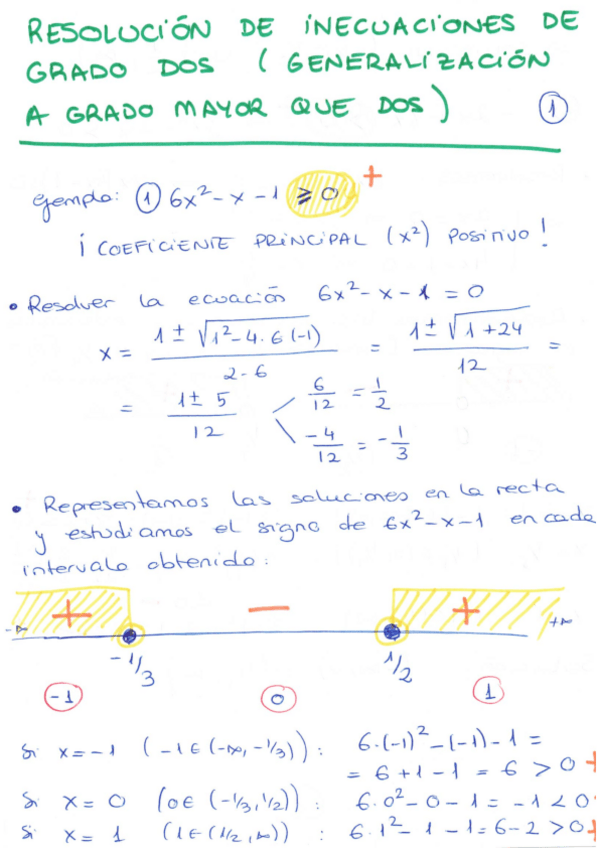 RESOLUCIÓN DE INECUACIONES DE
GRADO DOS (GENERALIZACIÓN
A GRADO MAYOR QUE DOS) 1
Ejemplo: 1 6x² - x - 1 ≥ 0 +
¡ COEFICIENTE PRINCIPAL (x²) POSITIVO !
• Resolver la ecuación 6x² - x - 1 = 0
x = (1 ± √(1² - 4·6(-1))) / (2-6) = (1 ± √(1+24)) / 12 =
= (1 ± 5) / 12 < 6/12 = 1/2
-4/12 = -1/3
• Representamos las soluciones en la recta
y estudiamos el signo de 6x² - x - 1 en cada
intervalo obtenido:
+ − +
-∞ +∞
-1/3 1/2
-1 0 1
Si x = -1 (-1 ∈ (-∞, -1/3)) : 6·(-1)² - (-1) - 1 =
= 6 + 1 - 1 = 6 > 0 +
Si x = 0 (0 ∈ (-1/3, 1/2)) : 6·0² - 0 - 1 = -1 < 0
Si x = 1 (1 ∈ (1/2, ∞)) : 6·1² - 1 - 1 = 6 - 2 > 0 +